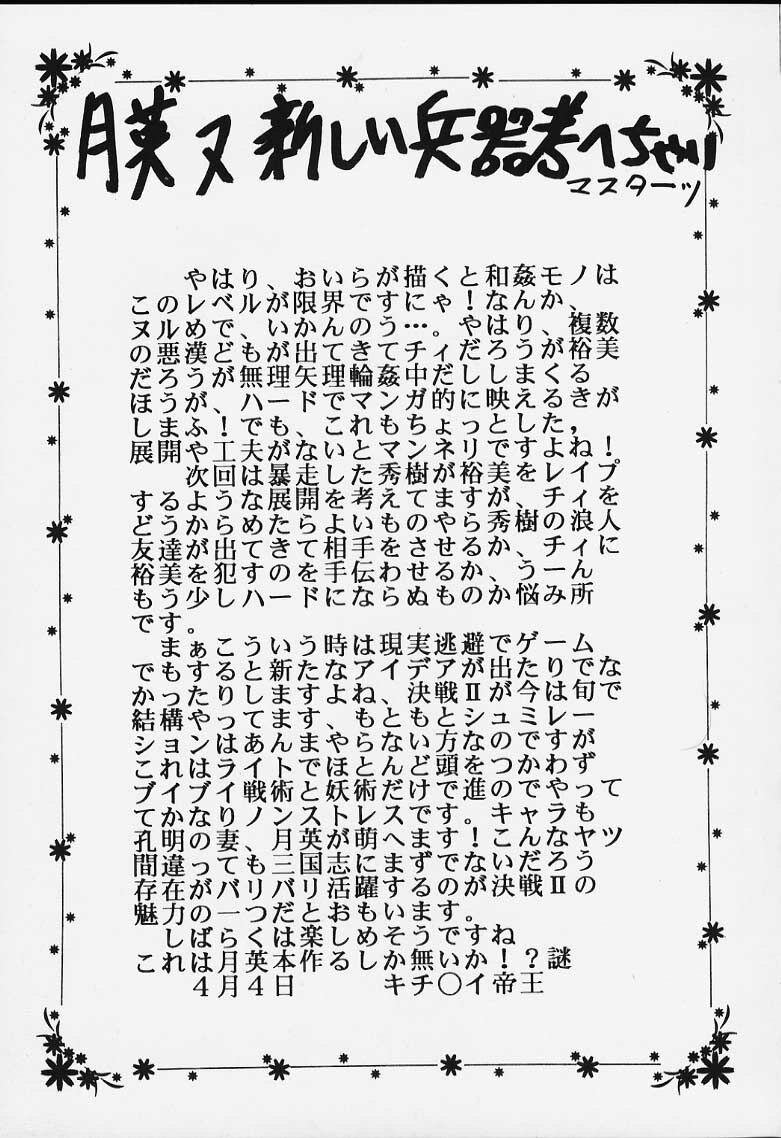 月英ヌ 新しい兵器考へちゃい
マスターッ
やはり、おいらが描くと和姦モノは
このレベルが限界ですにゃ！なんか、
ヌルめで、いかんのう…。やはり、複数
の悪漢どもが出てきてチィだろうが裕美
だろうが無理矢理輪姦中だしまくる
ほうが、ハードでマンガ的に映えるきが
しまふ！でも、これもちょっとした，
展開や工夫がないとマンネリですよね！
次回は暴走した秀樹が裕美をレイプ
するような展開を考えてますが、チィを
どうからめたらよいものやら秀樹の浪人
友達が出てきて相手をさせるか、チィに
裕美を犯すのを手伝わせるか、うーん
もう少しハードにならぬものか悩み所
です。
まぁこういう時は現実逃避でゲーム
でもすると新たなアイデアが出たりでな
かったりしますよね、決戦Ⅱが今は旬で
結構やってます、もともとシュミレー
ションはあんまやらない方なのですが
これはライトでほとんど頭をつかわず
ブイブイ戦術と妖術だけで進のでやって
てかなりノンストレスです。キャラも
孔明の妻、月英が萌へます！こんなヤツ
間違っても三国志にまずでないだろう
存在がバリバリ活躍するのが決戦Ⅱの
魅力の一つだとおもいます。
しばらくは楽しめそうですね
これは月英本作るしか無いか！？謎
４月４日　　　キチ〇イ帝王